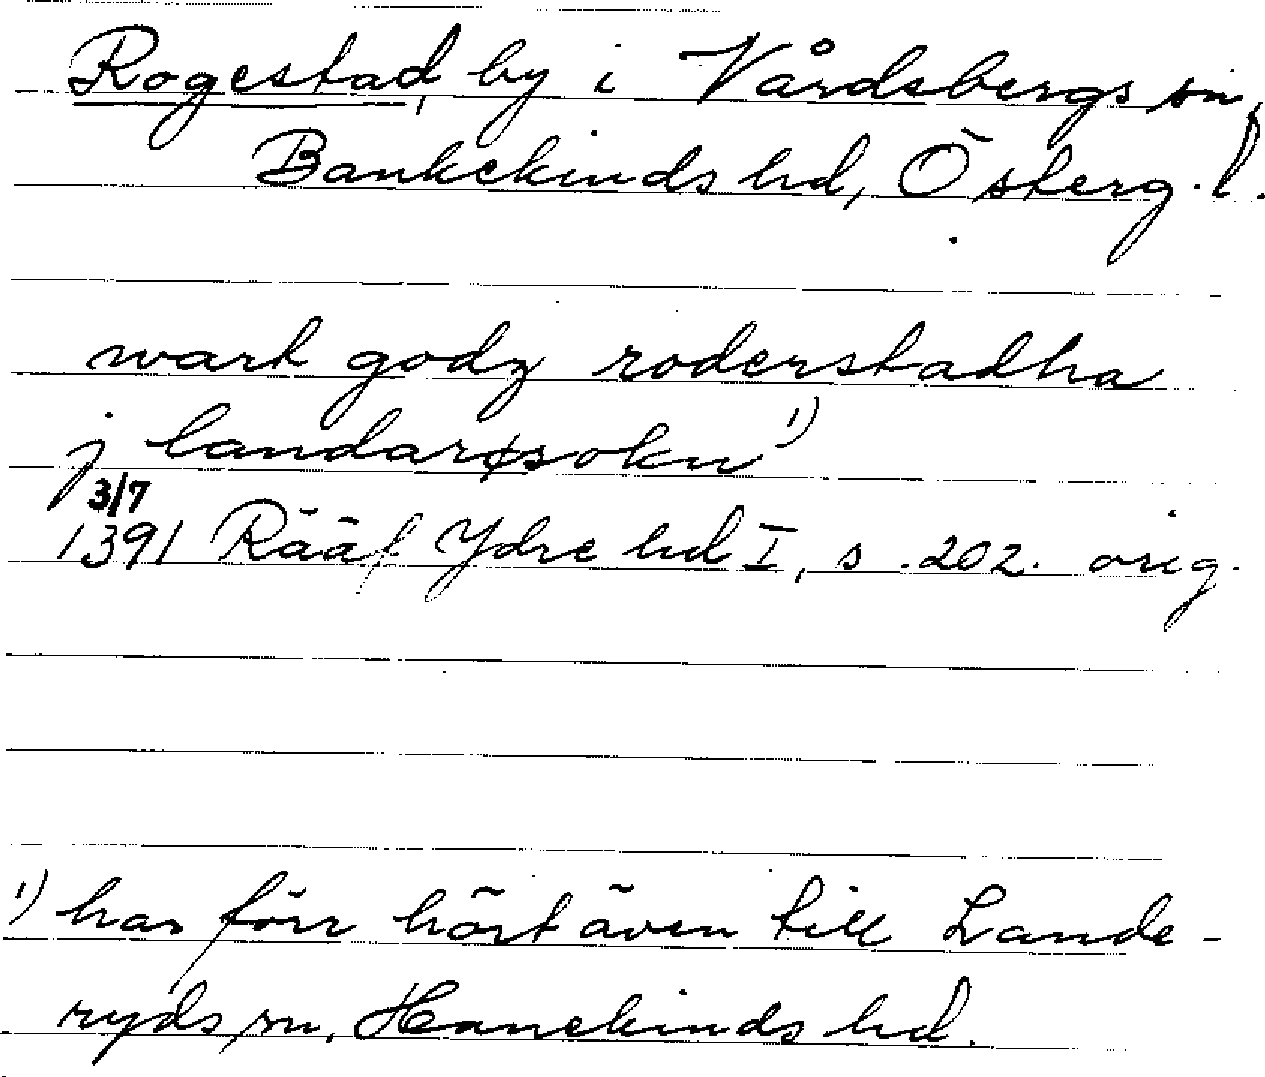 Rogestad, by i Vårdsbergs sn,
Bankekinds hd, Österg. l.
wart godz roderstadha
j landarøsokn 1)
3/7
1391 Rääf Ydre hd I, s. 202. orig.
1) har förr hört även till Lande-
ryds sn, Hanekinds hd.